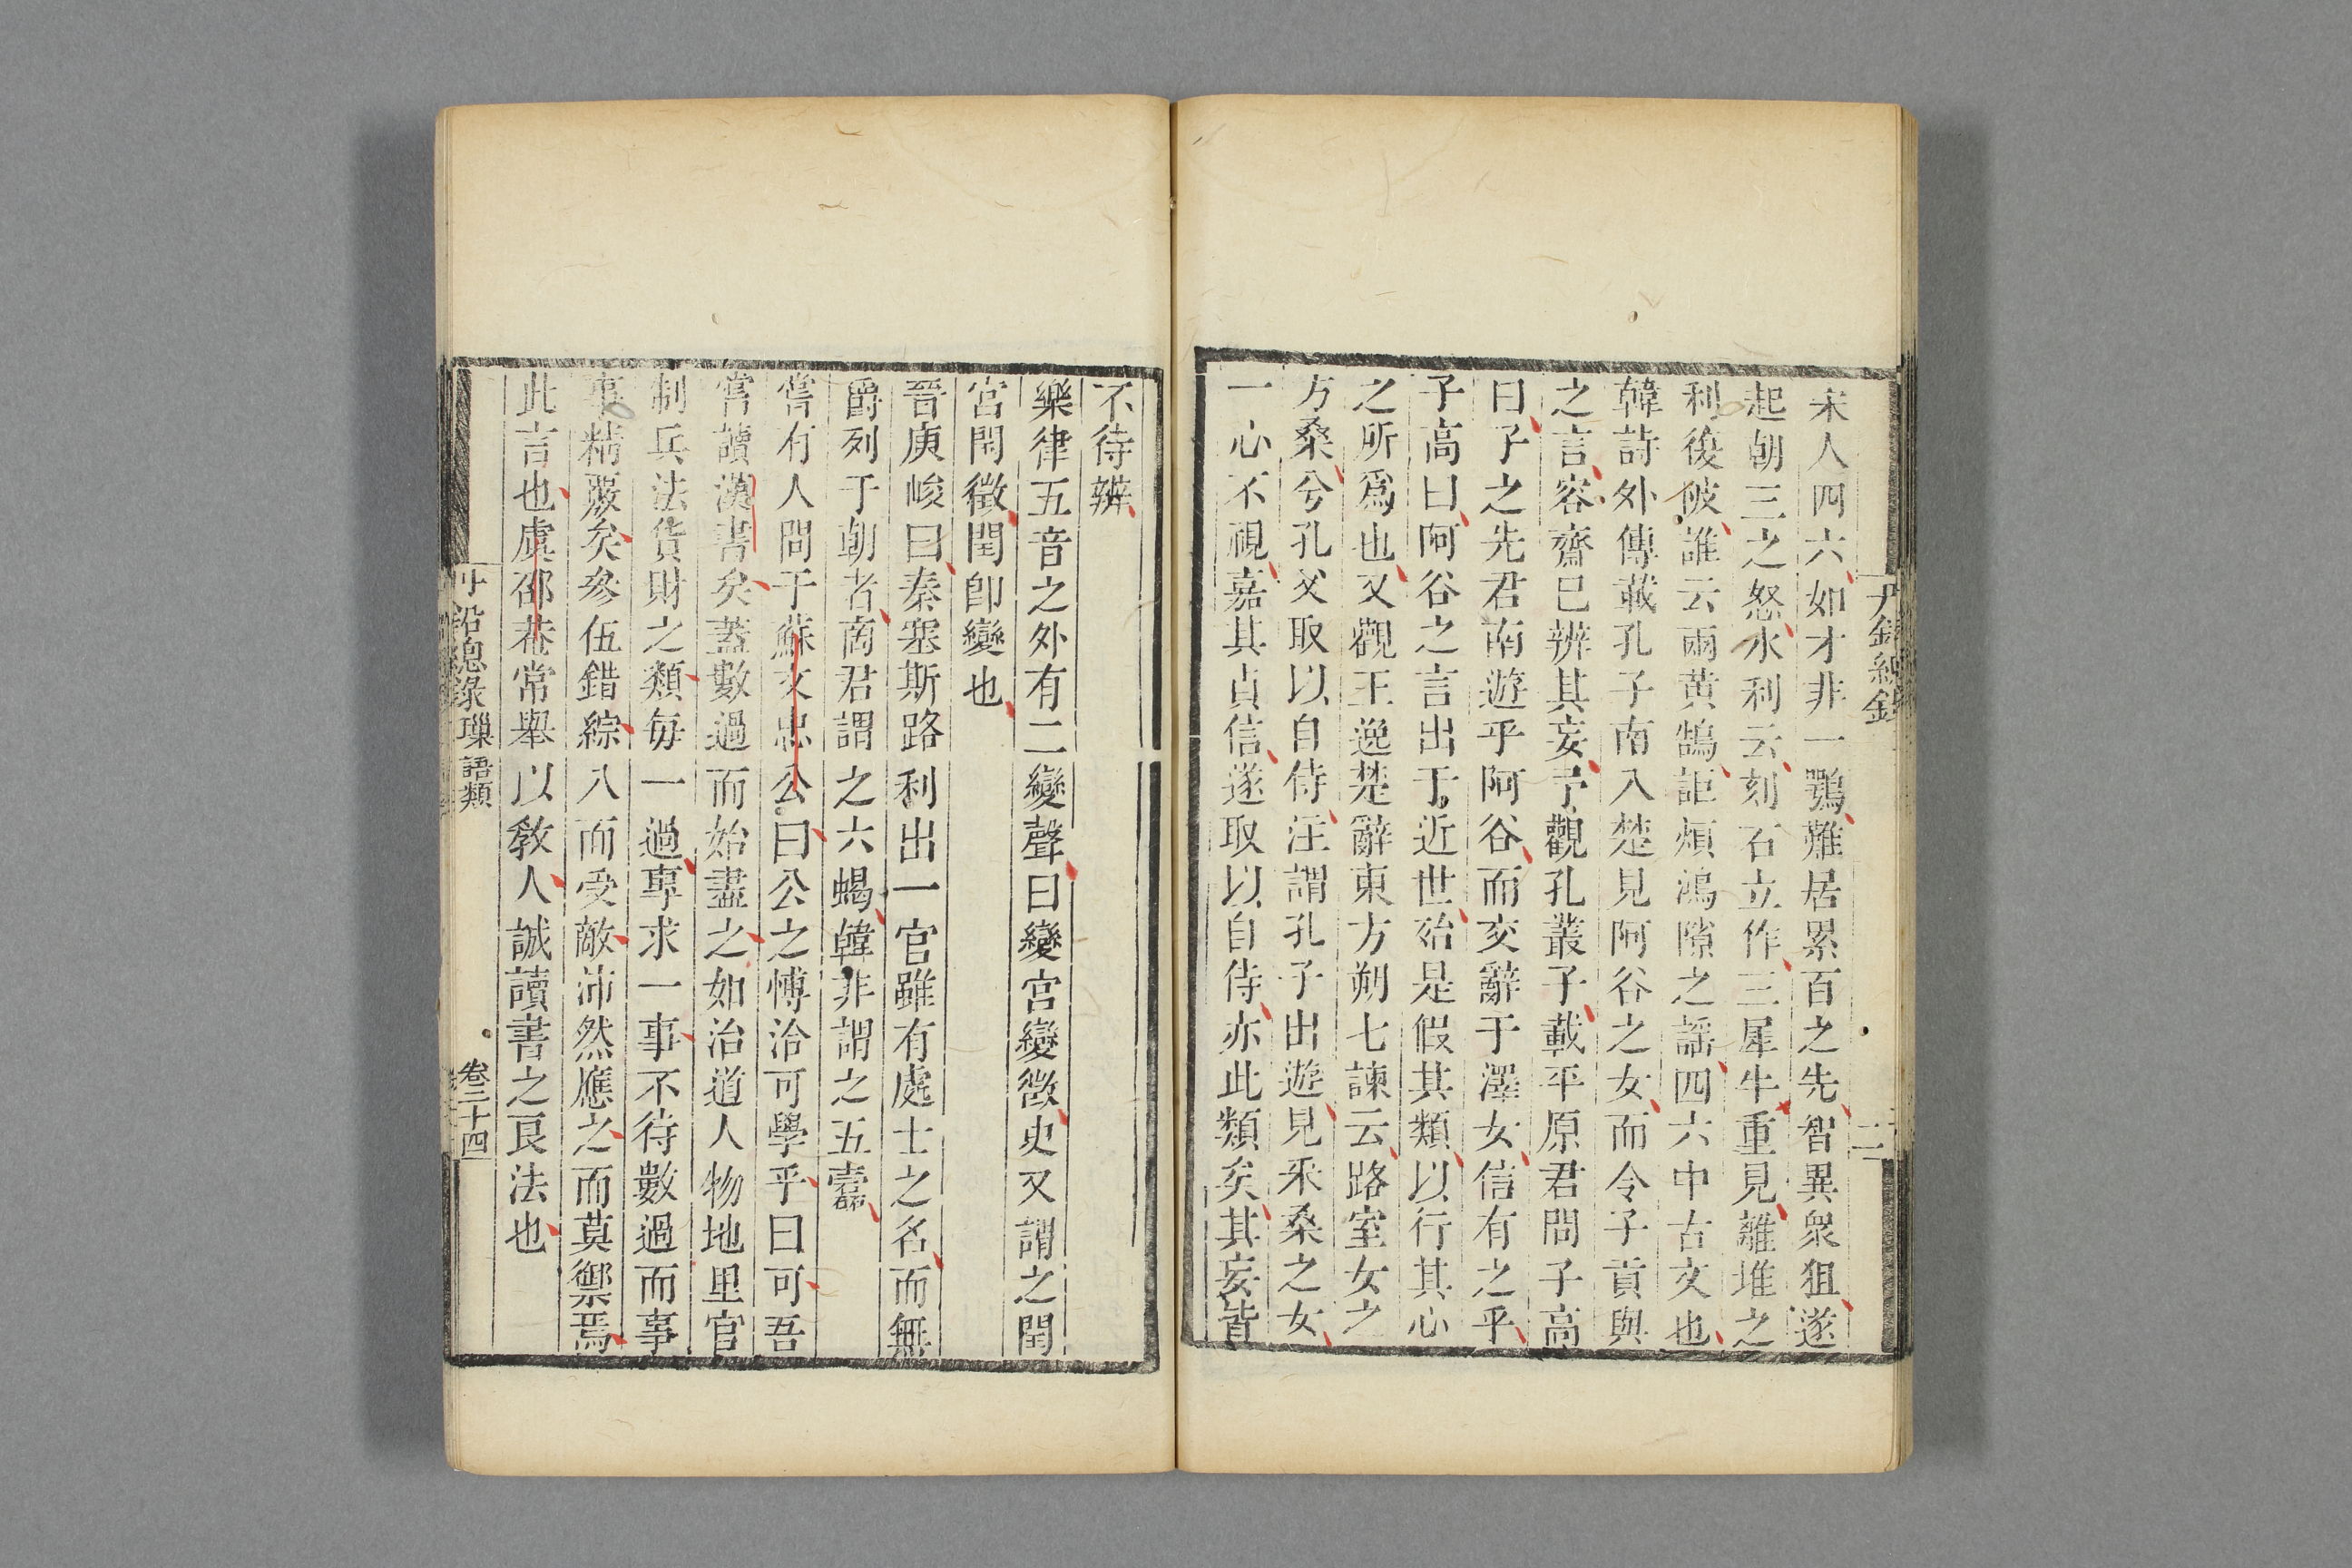 宋人四六如才非一鶚難居累百之先智異衆狙遂
起朝三之怒水利云刻石立作三犀牛重見離堆之
利後陂誰云兩黃鵠詎煩鴻隙之謠四六中古文也
韓詩外傳載孔子南入楚見阿谷之女而令子貢與
之言容齋已辨其妄予觀孔叢子載平原君問子高
曰子之先君南遊乎阿谷而交辭于澤女信有之乎
子高曰阿谷之言出于近世殆是假其類以行其心
之所爲也又觀王逸楚辭東方朔七諫云路室女之
方桑兮孔父取以自侍注謂孔子出遊見釆桑之女
一心不視嘉其貞信遂取以自侍亦此類矣其妄皆
不待辨
樂律五音之外有二變聲曰變宮變徵史又謂之閏
宮閏徵閏卽變也
晉庾峻曰秦塞斯路利出一官雖有處士之名而無
爵列于朝者商君謂之六蝎韓非謂之五蠹
嘗有人問于蘇文忠公曰公之愽洽可學乎曰可吾
嘗讀漢書矣蓋數過而始盡之如治道人物地里官
制兵法貨財之類每一過專求一事不待數過而事
事精覈矣參伍錯綜八面受敵沛然應之而莫禦焉
此言也虞邵菴常舉以敎人誠讀書之良法也
升菴總錄 瑣語類 卷二十四